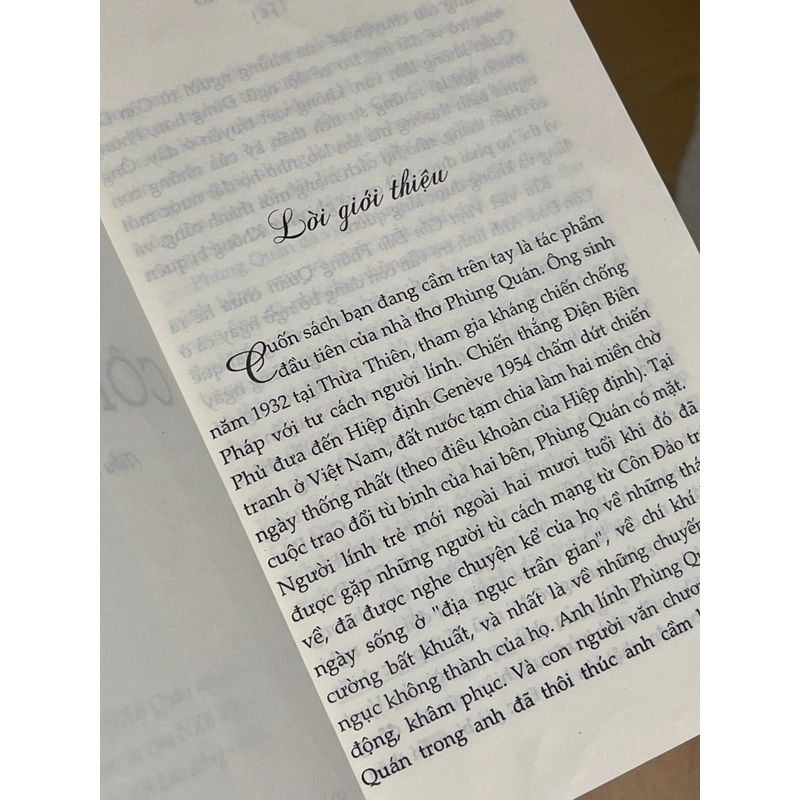 Lời giới thiệu
Cuốn sách bạn đang cầm trên tay là tác phẩm
đầu tiên của nhà thơ Phùng Quán. Ông sinh
năm 1932 tại Thừa Thiên, tham gia kháng chiến chống
Pháp với tư cách người lính. Chiến thắng Điện Biên
Phủ đưa đến Hiệp định Genève 1954 chấm dứt chiến
tranh ở Việt Nam, đất nước tạm chia làm hai miền chờ
ngày thống nhất (theo điều khoản của Hiệp định). Tại
cuộc trao đổi tù binh của hai bên, Phùng Quán có mặt.
Người lính trẻ mới ngoài hai mươi tuổi khi đó đã
được gặp những người tù cách mạng từ Côn Đảo tr
về, đã được nghe chuyện kể của họ về những thá
ngày sống ở "địa ngục trần gian", về chí khí
cường bất khuất, và nhất là về những chuyến
ngục không thành của họ. Anh lính Phùng Qu
động, khâm phục. Và con người văn chươ
Quán trong anh đã thôi thúc anh cầm